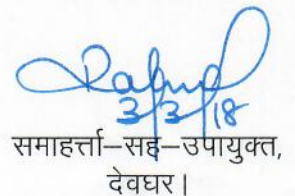 3/3/18
समाहर्त्ता–सह–उपायुक्त,
देवघर।